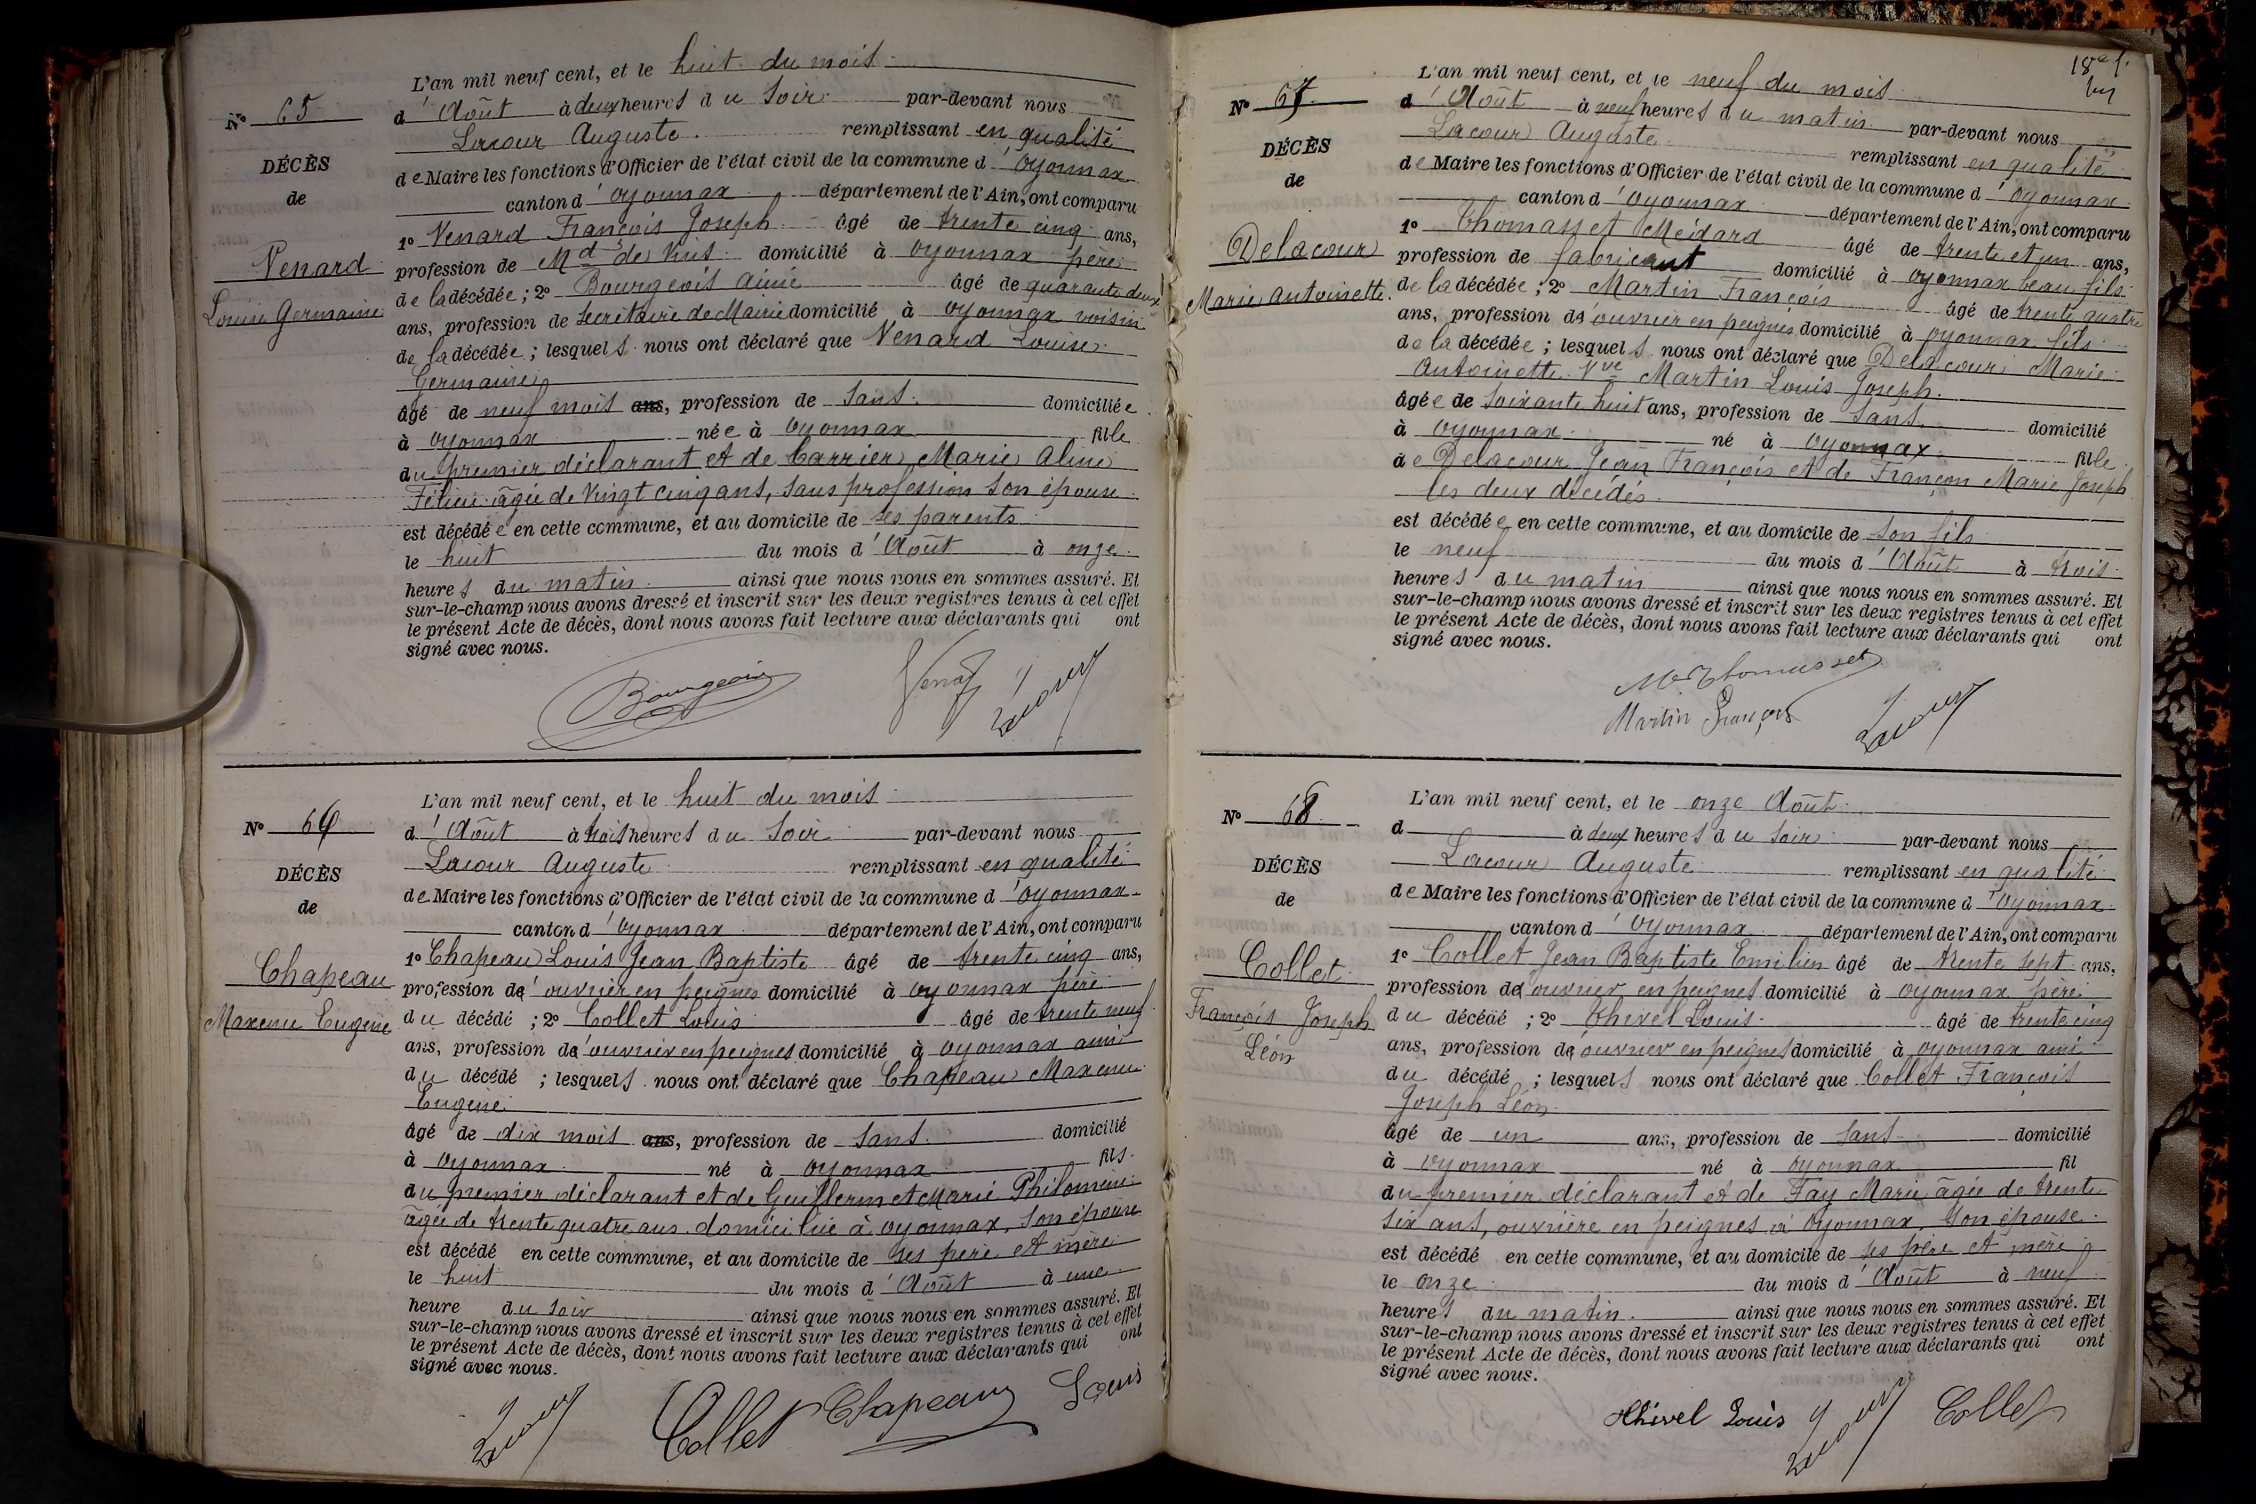 L'an mil neuf cent, et le huit du mois
N° 65 d'Août à deux heures du soir par-devant nous
Lacour Auguste remplissant en qualité
DÉCÈS
de Maire les fonctions d'Officier de l'état civil de la commune d'Oyonnax
de
canton d'Oyonnax département de l'Ain, ont comparu
1° Venard François Joseph âgé de trente cinq ans,
Venard
profession de Md de vins domicilié à Oyonnax père
Louise Germaine
de la décédée ; 2° Bourgeois Aimé âgé de quarante deux
ans, profession de Secrétaire de Mairie domicilié à Oyonnax voisin
de la décédée ; lesquels nous ont déclaré que Venard Louise
Germaine
âgé de neuf mois ans, profession de sans domiciliée
à Oyonnax née à Oyonnax fille
du premier déclarant et de Carrier Marie Aline
âgée de vingt cinq ans, sans profession son épouse
est décédée en cette commune, et au domicile de ses parents
le huit du mois d'Août à onze
heures du matin ainsi que nous nous en sommes assuré. Et
sur-le-champ nous avons dressé et inscrit sur les deux registres tenus à cet effet
le présent Acte de décès, dont nous avons fait lecture aux déclarants qui ont
signé avec nous.
Bourgeois Venard Lacour
L'an mil neuf cent, et le huit du mois
N° 66 d'Août à trois heures du soir par-devant nous
Lacour Auguste remplissant en qualité
DÉCÈS
de Maire les fonctions d'Officier de l'état civil de la commune d'Oyonnax
de
canton d'Oyonnax département de l'Ain, ont comparu
1° Chapeau Louis Jean Baptiste âgé de trente cinq ans,
Chapeau
profession d'ouvrier en peignes domicilié à Oyonnax père
Eugène
du décédé ; 2° Collet Louis âgé de trente neuf
ans, profession d'ouvrier en peignes domicilié à Oyonnax ami
du décédé ; lesquels nous ont déclaré que Chapeau
Eugène
âgé de dix mois ans, profession de sans domicilié
à Oyonnax né à Oyonnax fils
du premier déclarant et de Guillermet Marie Philomène
âgée de trente quatre ans domiciliée à Oyonnax, son épouse
est décédé en cette commune, et au domicile de ses père et mère
le huit du mois d'Août à une
heure du soir ainsi que nous nous en sommes assuré. Et
sur-le-champ nous avons dressé et inscrit sur les deux registres tenus à cet effet
le présent Acte de décès, dont nous avons fait lecture aux déclarants qui ont
signé avec nous.
Lacour Collet Chapeau Louis
18e f.
L'an mil neuf cent, et le neuf du mois
N° 67 d'Août à neuf heures du matin par-devant nous
Lacour Auguste remplissant en qualité
DÉCÈS
de Maire les fonctions d'Officier de l'état civil de la commune d'Oyonnax
de
canton d'Oyonnax département de l'Ain, ont comparu
1° Thomasset Médard âgé de trente et un ans,
Delacour
profession de fabricant domicilié à Oyonnax beau fils
Marie Antoinette.
de la décédée ; 2° Martin François âgé de trente quatre
ans, profession d'ouvrier en peignes domicilié à Oyonnax fils
de la décédée ; lesquels nous ont déclaré que Delacour Marie
Antoinette Vve Martin Louis Joseph.
âgée de soixante huit ans, profession de sans domicilié
à Oyonnax né à Oyonnax fille
de Delacour Jean François et de Françon Marie Joseph
les deux décédés.
est décédée en cette commune, et au domicile de son fils
le neuf du mois d'Août à trois
heures du matin ainsi que nous nous en sommes assuré. Et
sur-le-champ nous avons dressé et inscrit sur les deux registres tenus à cet effet
le présent Acte de décès, dont nous avons fait lecture aux déclarants qui ont
signé avec nous.
M. Thomasset
Martin François Lacour
L'an mil neuf cent, et le onze Août
N° 68 d à deux heures du soir par-devant nous
Lacour Auguste remplissant en qualité
DÉCÈS
de Maire les fonctions d'Officier de l'état civil de la commune d'Oyonnax
de
canton d'Oyonnax département de l'Ain, ont comparu
1° Collet Jean Baptiste Emilien âgé de trente sept ans,
Collet
profession d'ouvrier en peignes domicilié à Oyonnax père
François Joseph
du décédé ; 2° Thevel Louis âgé de trente cinq
Léon
ans, profession d'ouvrier en peignes domicilié à Oyonnax ami
du décédé ; lesquels nous ont déclaré que Collet François
Joseph Léon
âgé de un ans, profession de sans domicilié
à Oyonnax né à Oyonnax fil
du premier déclarant et de Fay Marie âgée de trente
six ans, ouvrière en peignes à Oyonnax, son épouse.
est décédé en cette commune, et au domicile de ses père et mère
le onze du mois d'Août à neuf
heures du matin ainsi que nous nous en sommes assuré. Et
sur-le-champ nous avons dressé et inscrit sur les deux registres tenus à cet effet
le présent Acte de décès, dont nous avons fait lecture aux déclarants qui ont
signé avec nous.
Thevel Louis Lacour Collet